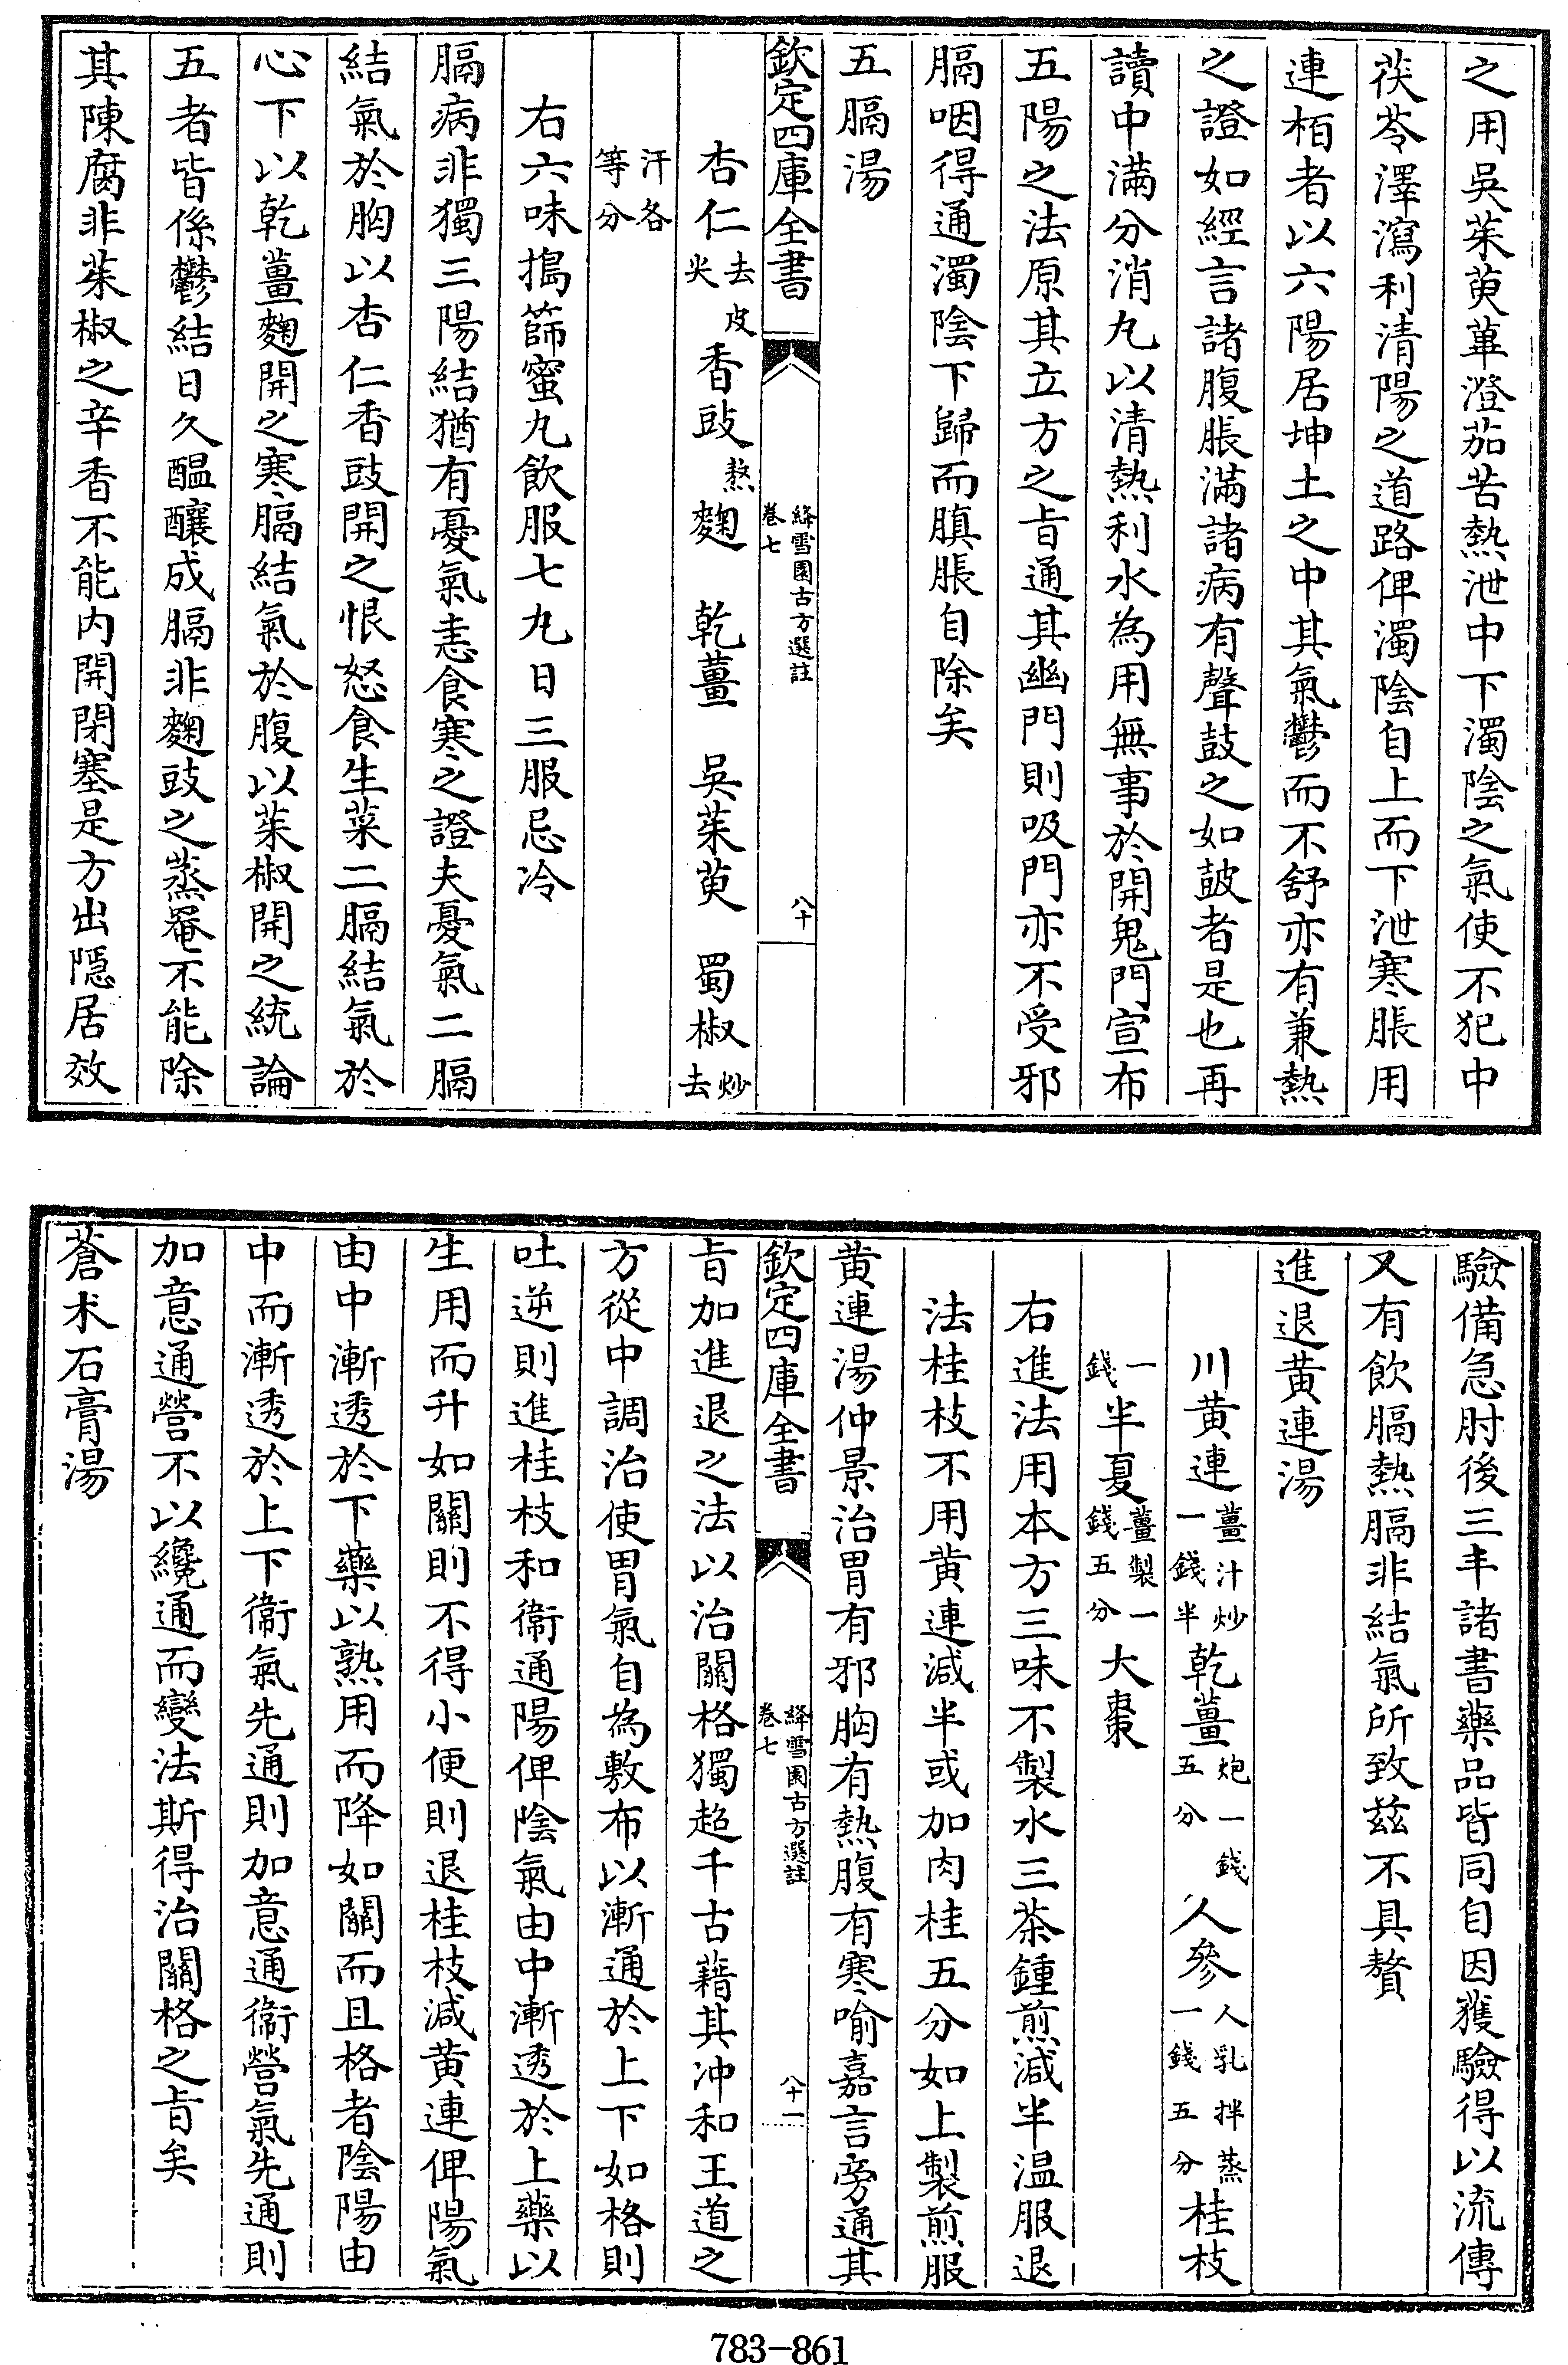 之用吳茱萸蓽澄茄苦熱泄中下濁陰之氣使不犯中
茯苓澤瀉利清陽之道路俾濁陰自上而下泄寒脹用
連栢者以六陽居坤土之中其氣鬱而不舒亦有兼熱
之證如經言諸腹脹滿諸病有聲鼓之如皷者是也再
讀中滿分消丸以清熱利水為用無事於開鬼門宣布
五陽之法原其立方之㫖通其幽門則吸門亦不受邪
膈咽得通濁陰下歸而䐜脹自除矣
五膈湯
欽定四庫全書 絳雪園古方選註 卷七 八十
杏仁去皮尖 香豉熬 麴 乾薑 吳茱萸 蜀椒炒去
汗各等分
右六味搗篩蜜丸飲服七丸日三服忌冷
膈病非獨三陽結猶有憂氣恚食寒之證夫憂氣二膈
結氣於胸以杏仁香豉開之恨怒食生菜二膈結氣於
心下以乾薑麴開之寒膈結氣於腹以茱椒開之統論
五者皆係鬱結日久醖釀成膈非麴豉之蒸罨不能除
其陳腐非茱椒之辛香不能内開閉塞是方出隱居效
驗備急肘後三丰諸書藥品皆同自因獲驗得以流傳
又有飲膈熱膈非結氣所致兹不具贅
進退黄連湯
川黄連薑汁炒一錢半 乾薑炮一錢五分 人參人乳拌蒸一錢五分 桂枝
一錢 半夏薑製一錢五分 大棗
右進法用本方三味不製水三茶鍾煎減半温服退
法桂枝不用黄連減半或加肉桂五分如上製煎服
黄連湯仲景治胃有邪胸有熱腹有寒喻嘉言旁通其
欽定四庫全書 絳雪園古方選註 卷七 八十一
㫖加進退之法以治關格獨超千古藉其冲和王道之
方從中調治使胃氣自為敷布以漸通於上下如格則
吐逆則進桂枝和衞通陽俾陰氣由中漸透於上藥以
生用而升如關則不得小便則退桂枝減黄連俾陽氣
由中漸透於下藥以熟用而降如關而且格者陰陽由
中而漸透於上下衞氣先通則加意通衞營氣先通則
加意通營不以纔通而變法斯得治關格之㫖矣
蒼朮石膏湯
783-861